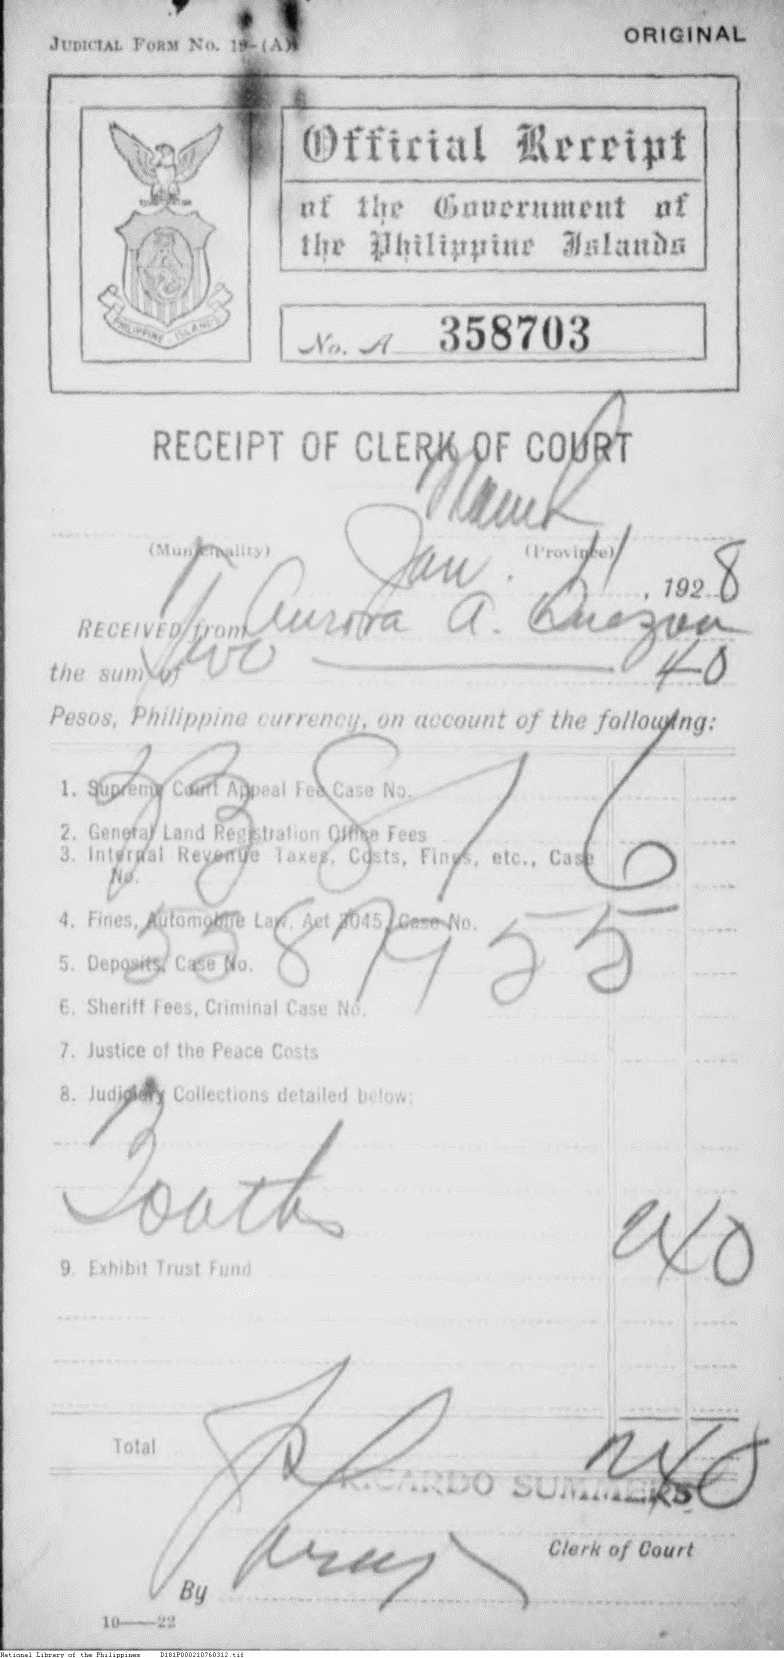 JUDICIAL FORM No. 19-(A)
ORIGINAL
Official Receipt
of the Government of
the Philippine Islands
PHILIPPINE ISLANDS
No. A 358703
RECEIPT OF CLERK OF COURT
(Municipality) (Province)
Jan. 11, 1928
RECEIVED from Aurora A. Quezon
the sum of Two 40
Pesos, Philippine currency, on account of the following:
1. Supreme Court Appeal Fee Case No.
2. General Land Registration Office Fees
3. Internal Revenue Taxes, Costs, Fines, etc., Case
No.
4. Fines, Automobile Law, Act 3045, Case No.
5. Deposits, Case No.
6. Sheriff Fees, Criminal Case No.
7. Justice of the Peace Costs
8. Judiciary Collections detailed below:
2 40
9. Exhibit Trust Fund
Total 2 40
RICARDO SUMMERS
Clerk of Court
By
10——22
National Library of the Philippines D181P000210760312.tif